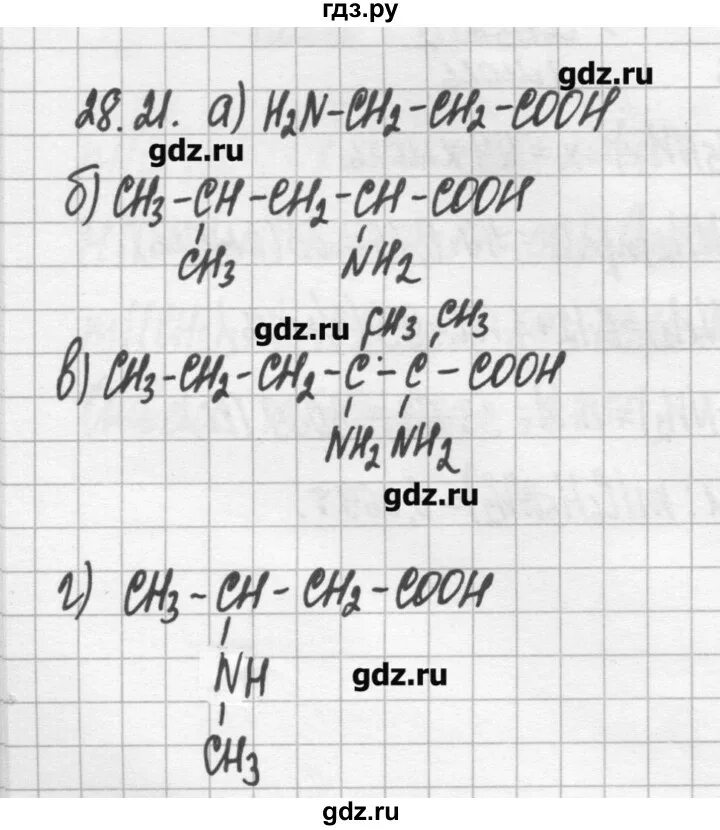 гдз.ру
gdz.ru
28.21. а) H₂N-CH₂-CH₂-COOH
gdz.ru
б) CH₃-CH-CH₂-CH-COOH
CH₃ NH₂
gdz.ru CH₃ CH₃
в) CH₃-CH₂-CH₂-C-C-COOH
NH₂ NH₂
gdz.ru
г) CH₃-CH-CH₂-COOH
NH gdz.ru
CH₃
gdz.ru